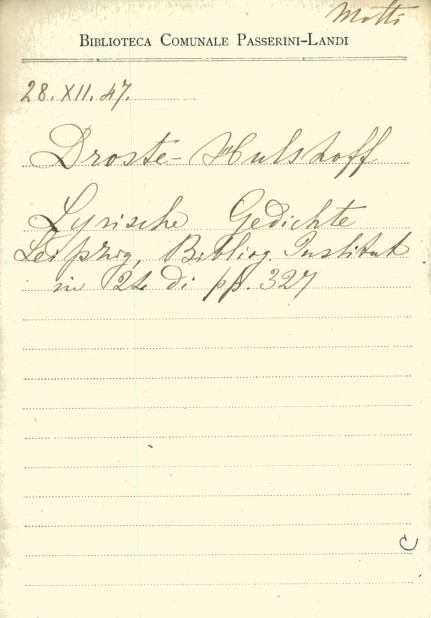 Motti
BIBLIOTECA COMUNALE PASSERINI-LANDI
28.XII.47.
Droste-Hulshoff
Lyrische Gedichte
Leipzig, Bibliog. Institut
in 12 di pp. 327
C